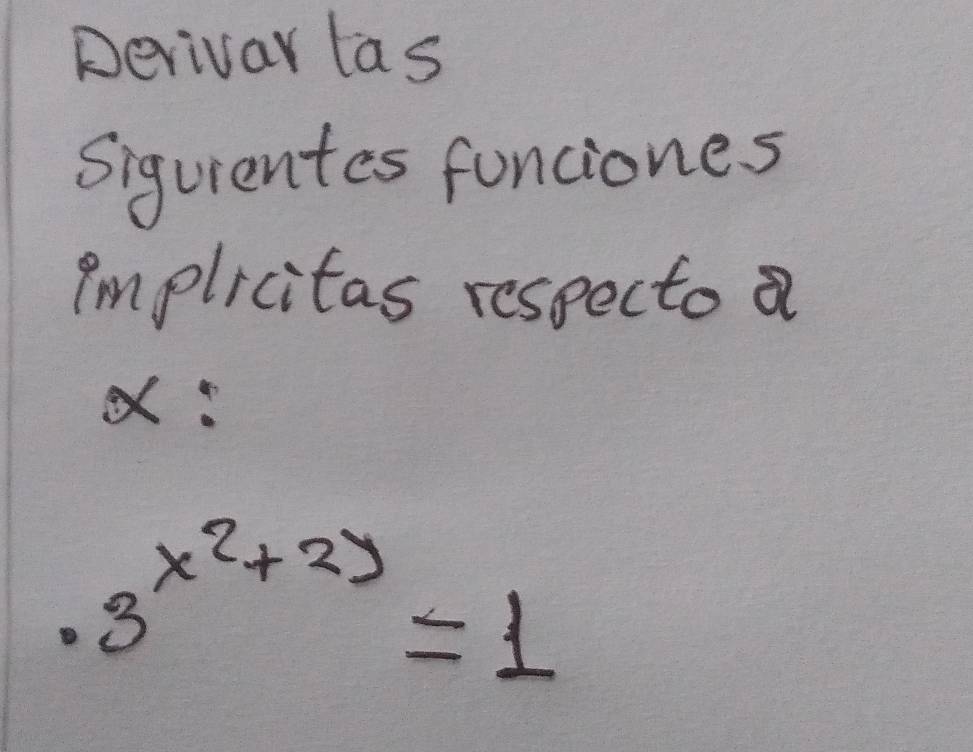 Derivar las
Siguientes funciones
implicitas respecto a
x:
· 3^{x^2+2y} = 1